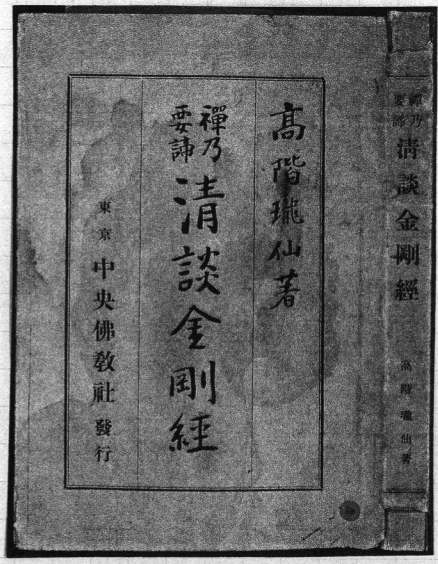 高階瓏仙著
禪乃
要諦
清談金剛經
東京 中央佛敎社 發行
禪乃
要諦
清談金剛經
高階瓏仙著